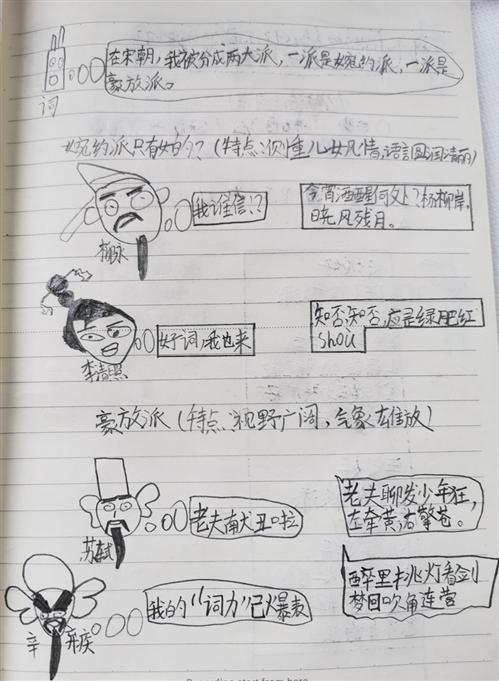 在宋朝,我被分成两大派,一派是婉约派,一派是
豪放派。
词
婉约派只有女的?(特点:侧重儿女风情,语言圆润清丽)
我谁信??
今宵酒醒何处?杨柳岸,
晓风残月。
柳永
好词,我也来
知否,知否,应是绿肥红
shou
李清照
豪放派(特点:视野广阔,气象雄放)
老夫献丑啦
老夫聊发少年狂,
左牵黄,右擎苍。
苏轼
我的"词力"已爆表
醉里挑灯看剑
梦回吹角连营
辛弃疾